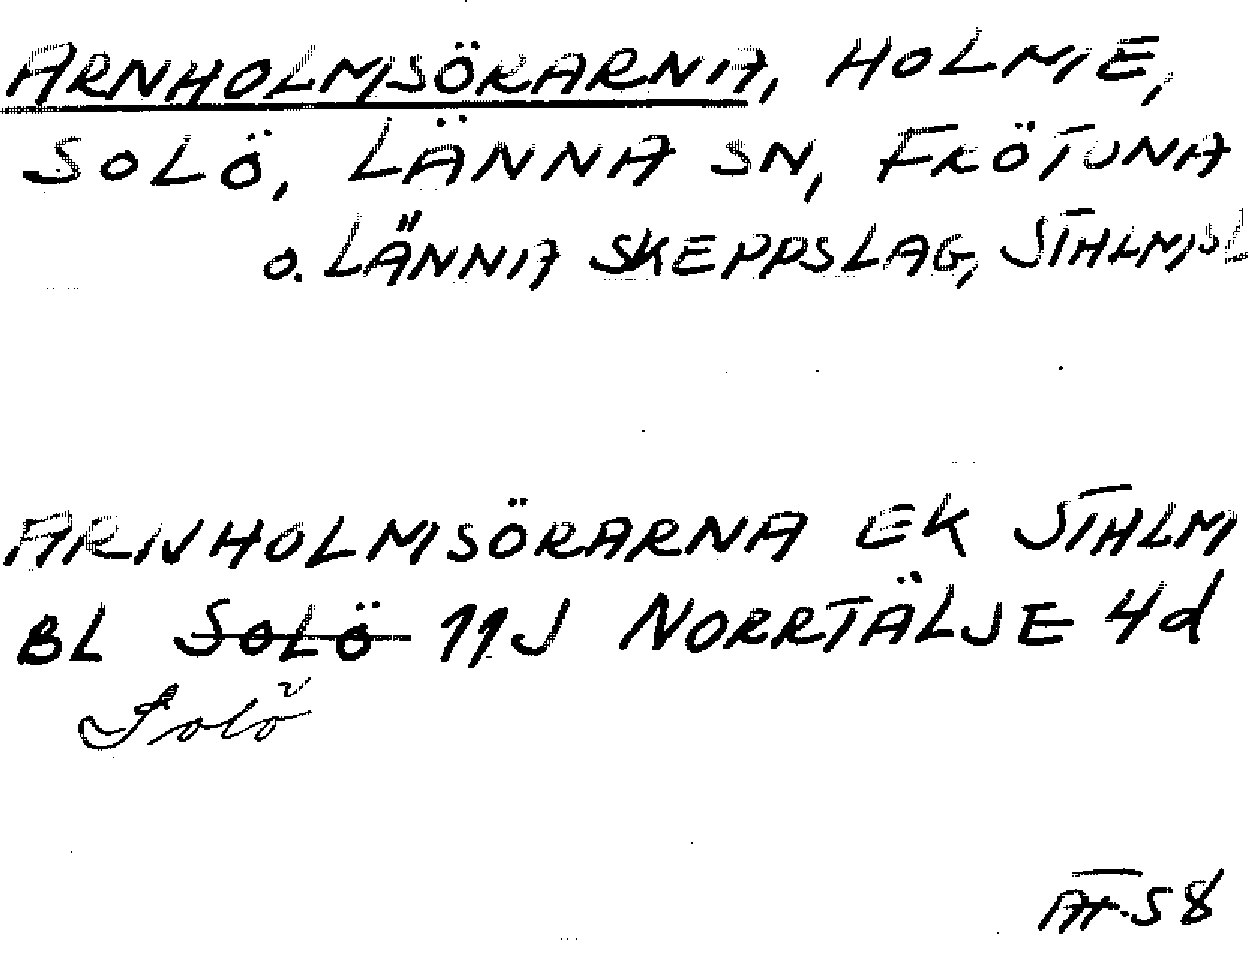 ARNHOLMSÖRARNA, HOLME,
SOLÖ, LÄNNA SN, FRÖTUNA
o. LÄNNA SKEPPSLAG, STHLMSL
ARNHOLMSÖRARNA EK STHLM
BL SOLÖ 11J NORRTÄLJE 4d
Solö
58